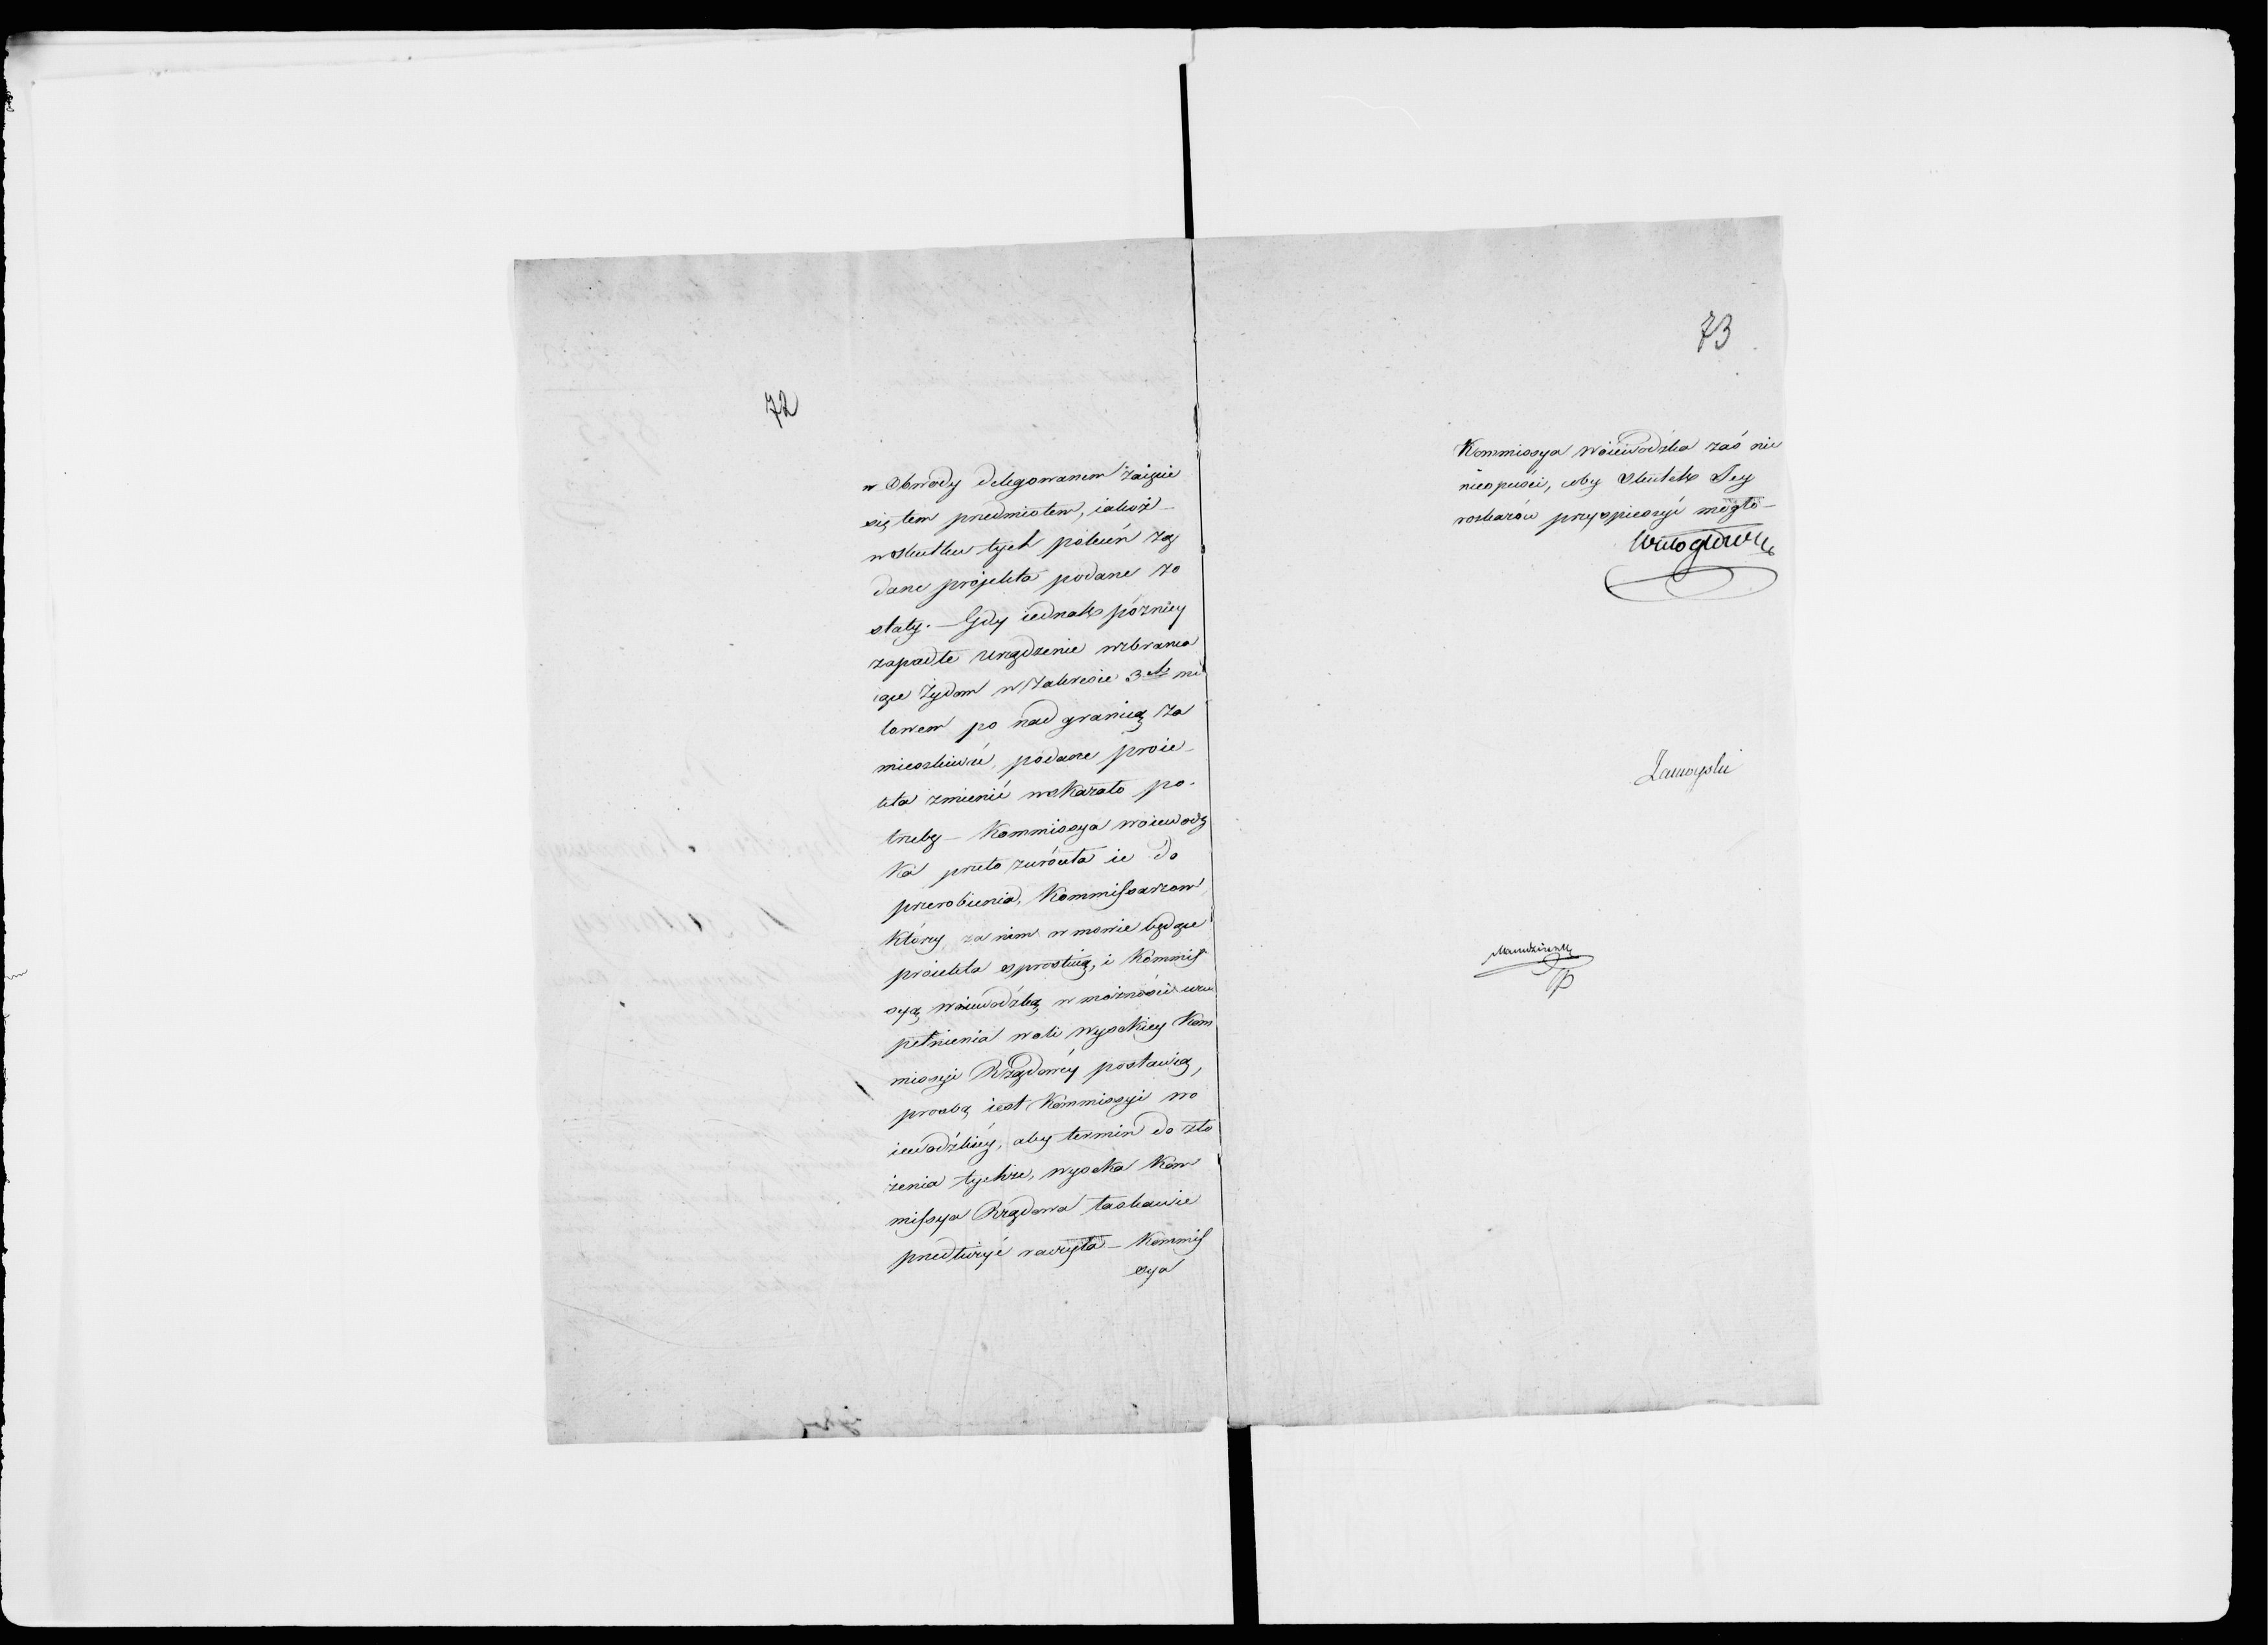 72
w Obwody delegowanem zaięcie
się tem przedmiotem, iakoż
w skutku tych poleceń żą
dane projekta podane zo
stały. — Gdy iednak późniey
zapadłe Urządzenie wzbrania
iące Żydom w zakresie 3ch mi
lowem po nad granicą za
mieszkiwać, podane proie-
kta zmienić wskazało po-
trzebę — Kommissya woiewodz
Ka przeto zwróciła ie do
przerobienia, Kommissarzom
którzy za nim w mowie będące
proiekta sprostuią, i Kommis
syą Woiewódzką w możności
pełnienia woli wysokiey Kom
missyi Rządowéy postawią,
prosbą iest Kommissyi wo
iewódzkiéy, aby termin do zło
żenia tychże, wysoka Kom
missya Rządowa łaskawie
przedłużyć raczyła — Kommis
sya
73
Kommissya Woiewódzka zaś nie
nieopuści, aby skutek Jey
rozkazów przyspieszyć mogło —
Wielogłowski
Zamoyski